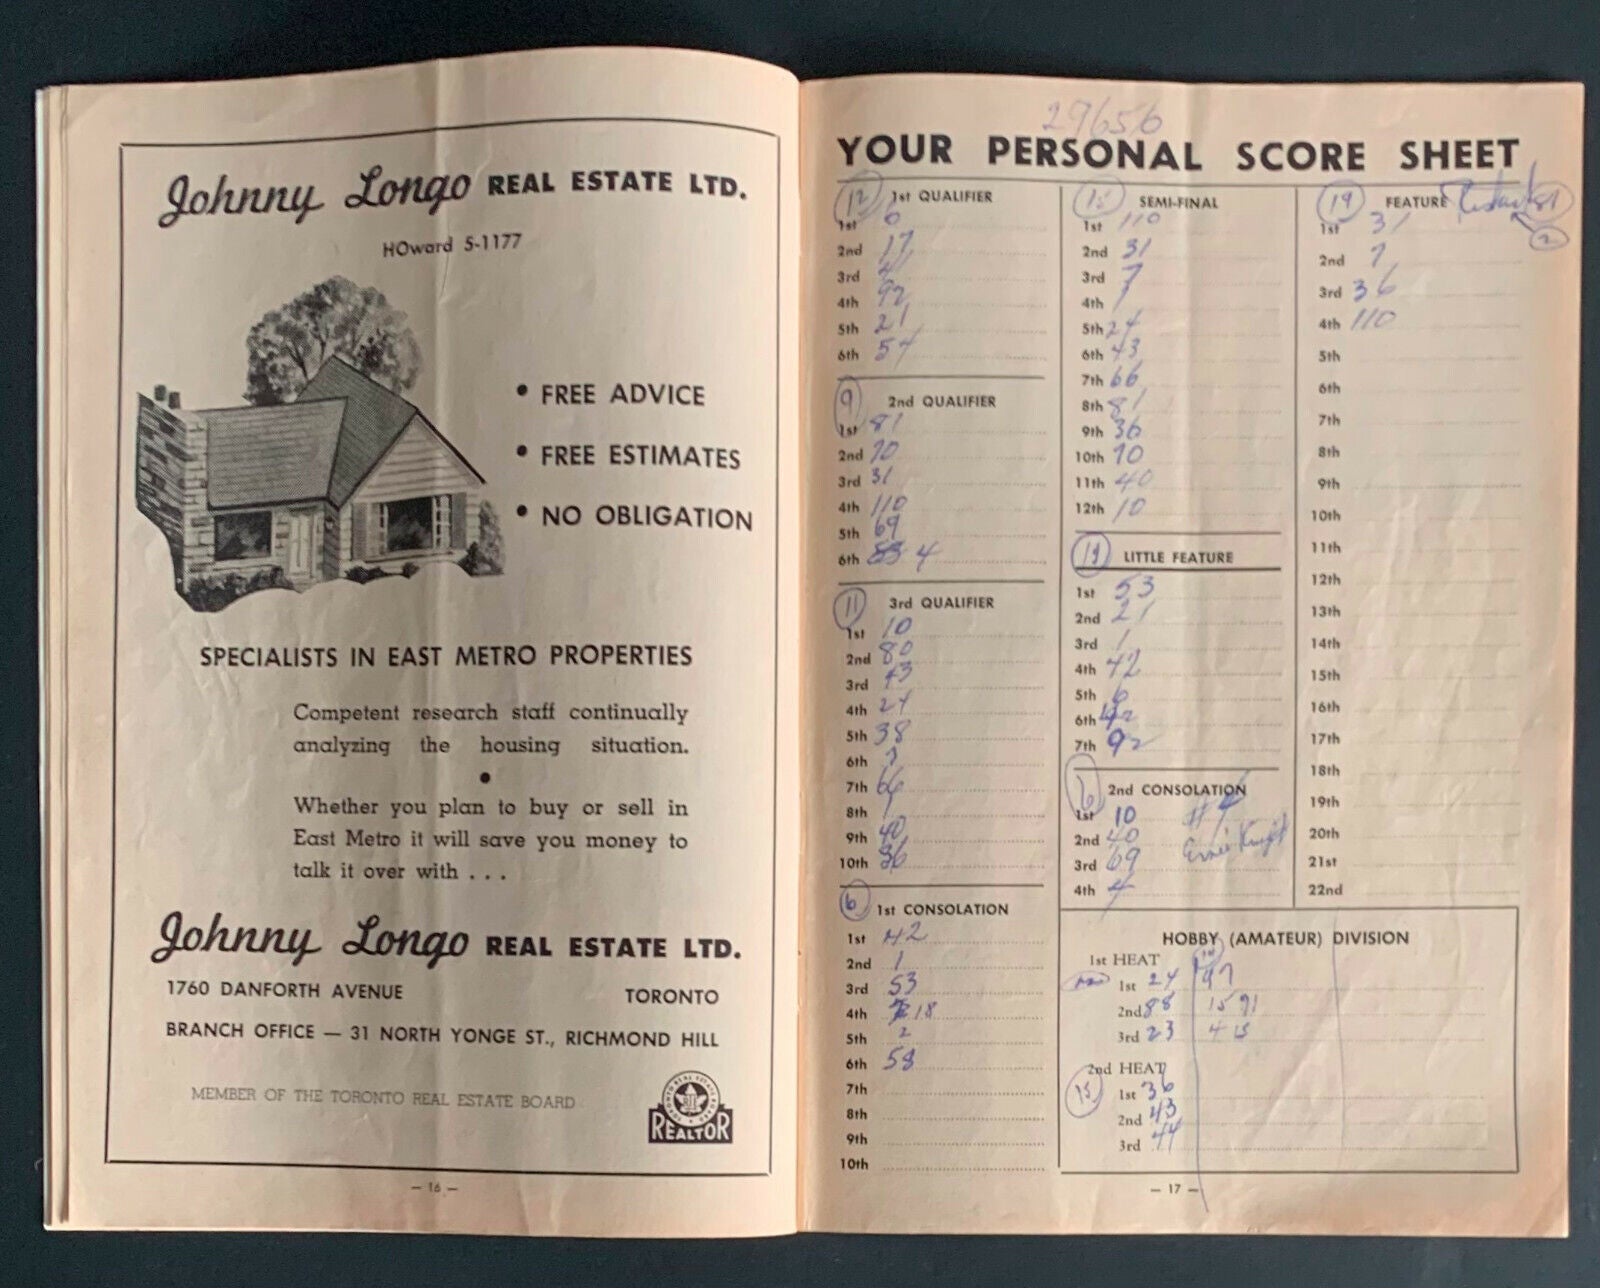 Johnny Longo REAL ESTATE LTD.
HOward 5-1177
• FREE ADVICE
• FREE ESTIMATES
• NO OBLIGATION
SPECIALISTS IN EAST METRO PROPERTIES
Competent research staff continually
analyzing the housing situation.
•
Whether you plan to buy or sell in
East Metro it will save you money to
talk it over with . . .
Johnny Longo REAL ESTATE LTD.
1760 DANFORTH AVENUE TORONTO
BRANCH OFFICE — 31 NORTH YONGE ST., RICHMOND HILL
MEMBER OF THE TORONTO REAL ESTATE BOARD
REALTOR
— 16 —
29656
YOUR PERSONAL SCORE SHEET
12 1st QUALIFIER
1st 6
2nd 17
3rd 41
4th 92
5th 21
6th 54
9 2nd QUALIFIER
1st 81
2nd 70
3rd 31
4th 110
5th 69
6th 53 4
11 3rd QUALIFIER
1st 10
2nd 80
3rd 43
4th 24
5th 38
6th 7
7th 66
8th 1
9th 40
10th 36
6 1st CONSOLATION
1st 42
2nd 1
3rd 53
4th 18
5th 2
6th 58
7th
8th
9th
10th
SEMI-FINAL
1st 110
2nd 31
3rd 7
4th 1
5th 24
6th 43
7th 66
8th 81
9th 36
10th 70
11th 40
12th 10
LITTLE FEATURE
1st 53
2nd 21
3rd 1
4th 42
5th 6
6th
7th 92
2nd CONSOLATION
1st 10 #4
2nd 40 Ernie Knight
3rd 69
4th 4
19 FEATURE 81
2
1st 31
2nd 7
3rd 36
4th 110
5th
6th
7th
8th
9th
10th
11th
12th
13th
14th
15th
16th
17th
18th
19th
20th
21st
22nd
HOBBY (AMATEUR) DIVISION
1st HEAT
1st 24 97
2nd 88 15 91
3rd 23 4
2nd HEAT
15
1st 36
2nd 43
3rd 44
— 17 —